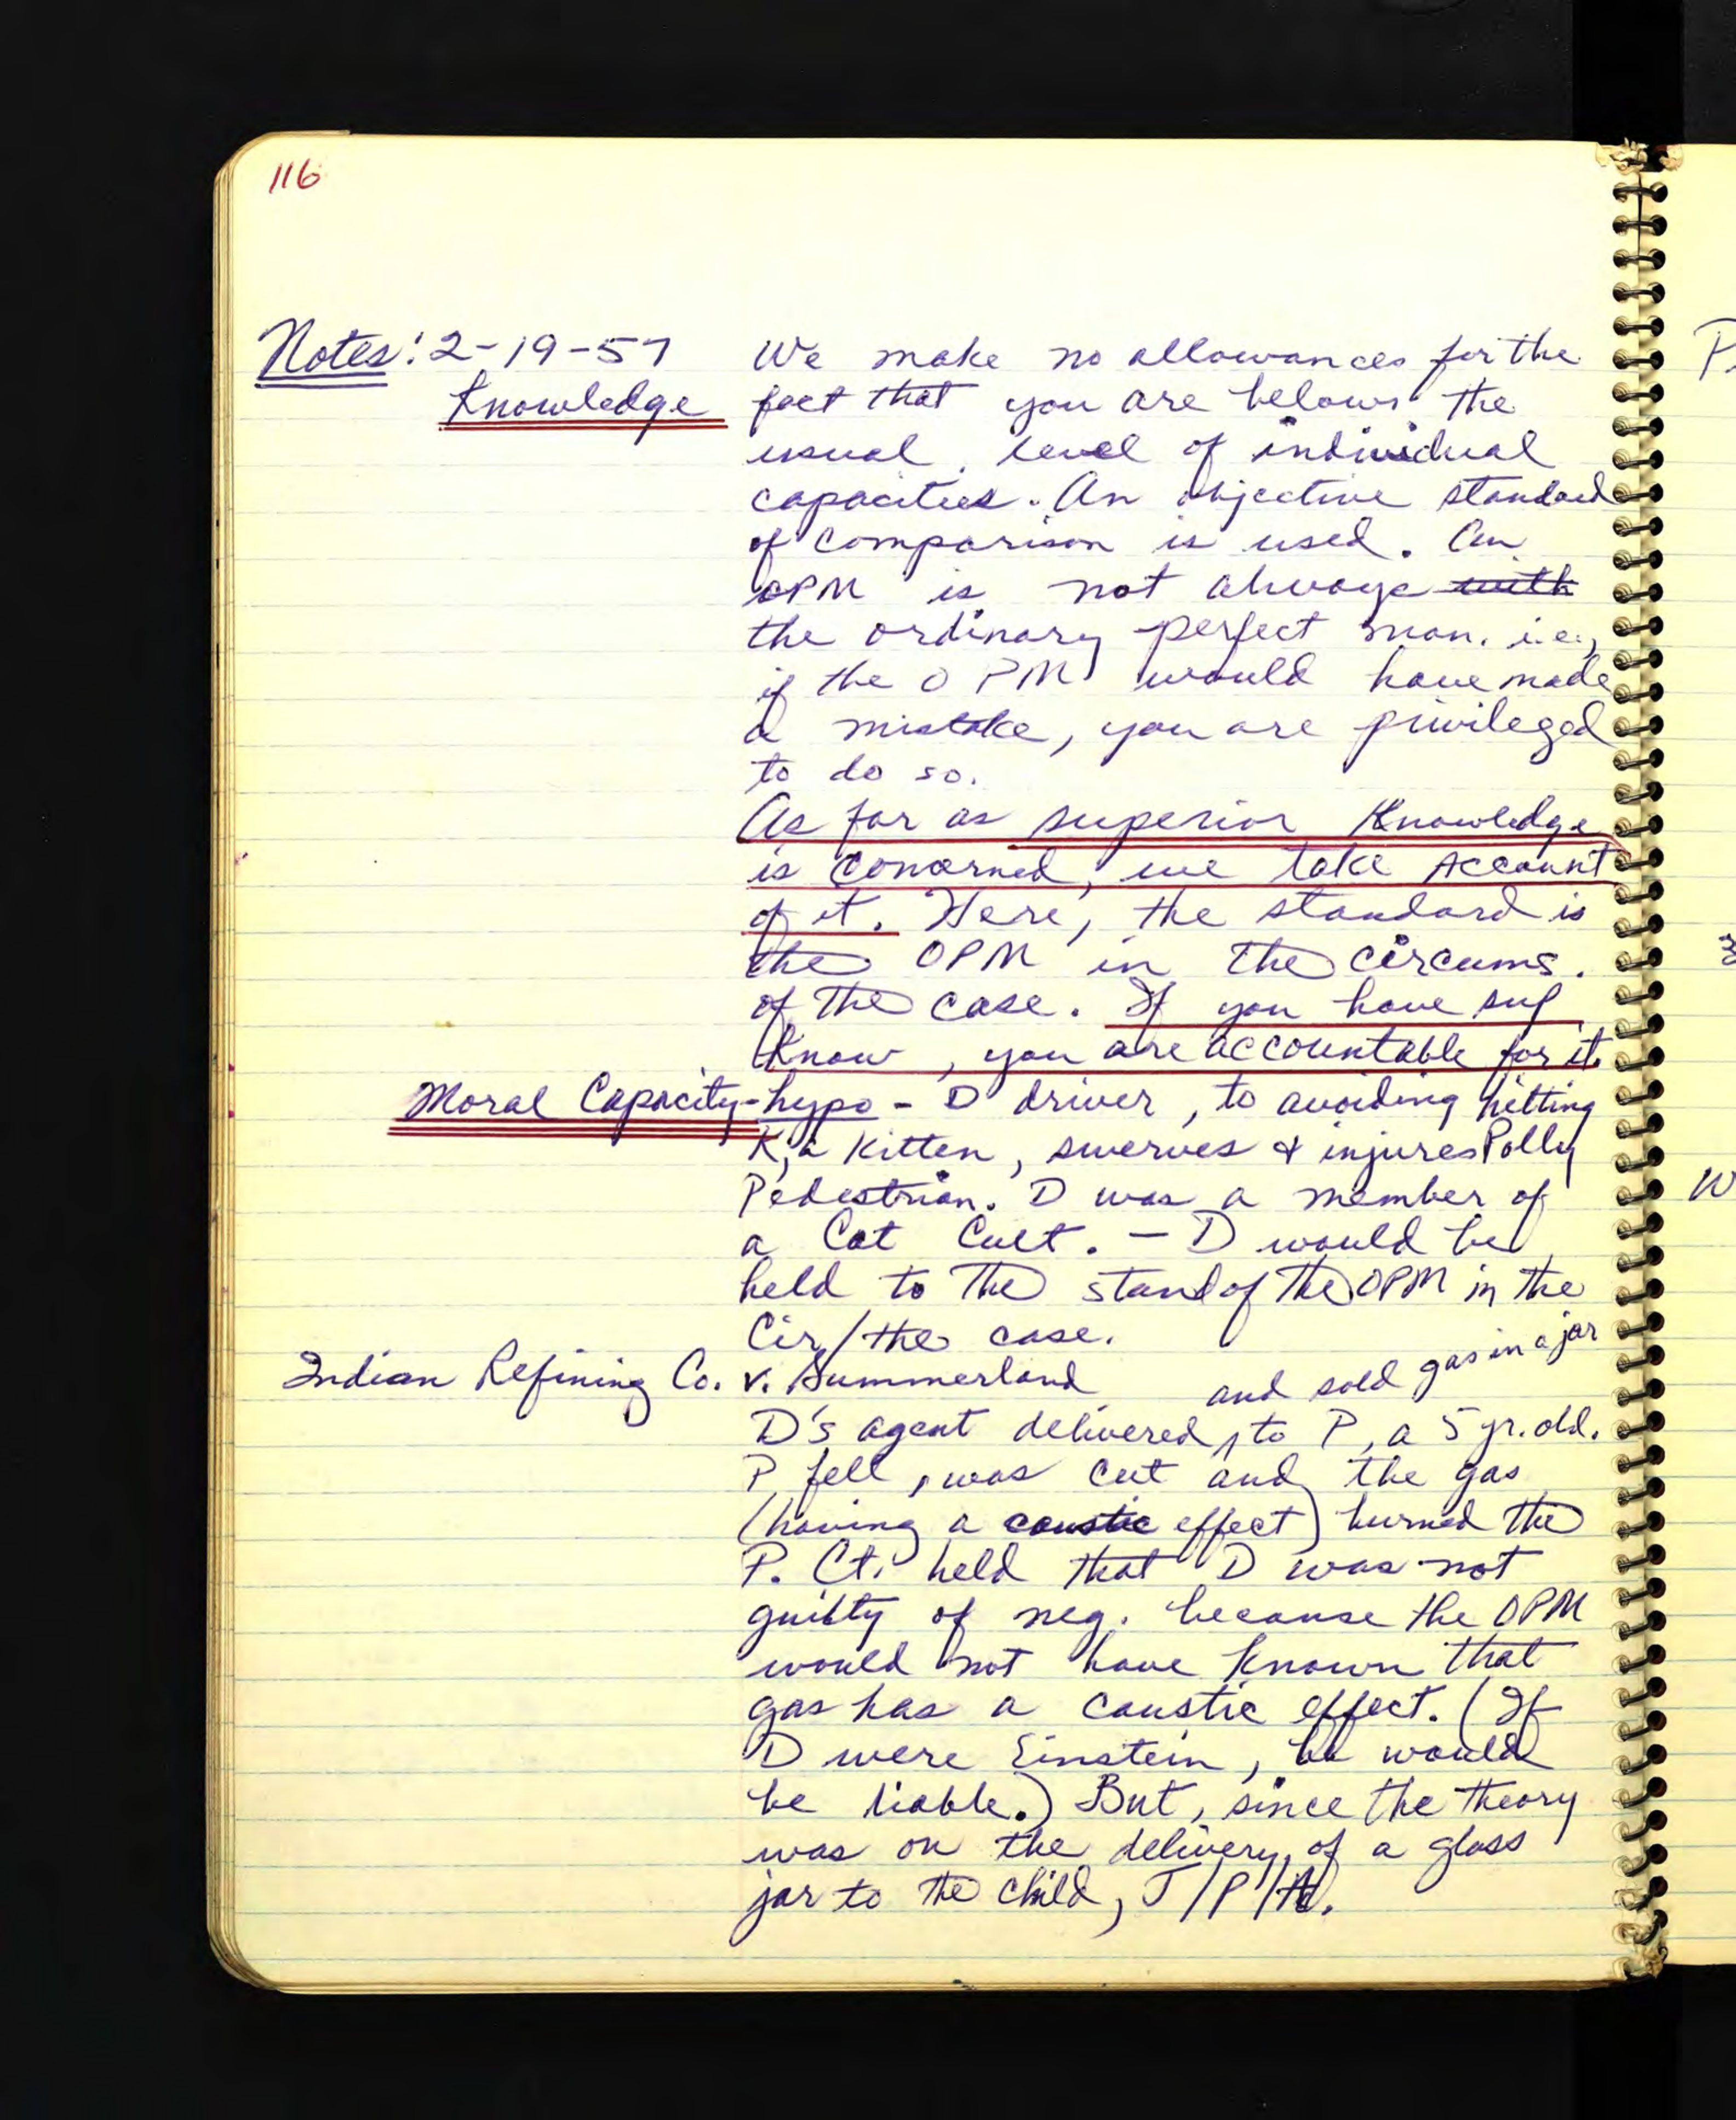 116
Notes: 2-19-57 We make no allowances for the
Knowledge fact that you are below the
usual level of individual
capacities. An objective standard
of comparison is used. An
OPM is not always with
the ordinary perfect man. i.e.,
if the OPM would have made
a mistake, you are privileged
to do so.
As far as superior Knowledge
is concerned, we take account
of it. Here, the standard is
the OPM in the circums.
of the case. If you have sup
Know, you are accountable for it.
Moral Capacity - hypo - D driver, to avoiding hitting
K, a Kitten, swerves & injures Polly
Pedestrian. D was a member of
a Cat Cult. - D would be
held to the stand of the OPM in the
Cir/the case.
Indian Refining Co. v. Summerland
and sold gas in a jar
D's agent delivered ^ to P, a 5 yr. old.
P fell, was cut and the gas
(having a caustic effect) burned the
P. Ct. held that D was not
guilty of neg. because the OPM
would not have known that
gas has a caustic effect. (If
D were Einstein, he would
be liable.) But, since the theory
was on the delivery of a glass
jar to the child, J/P/A.
P
3
W